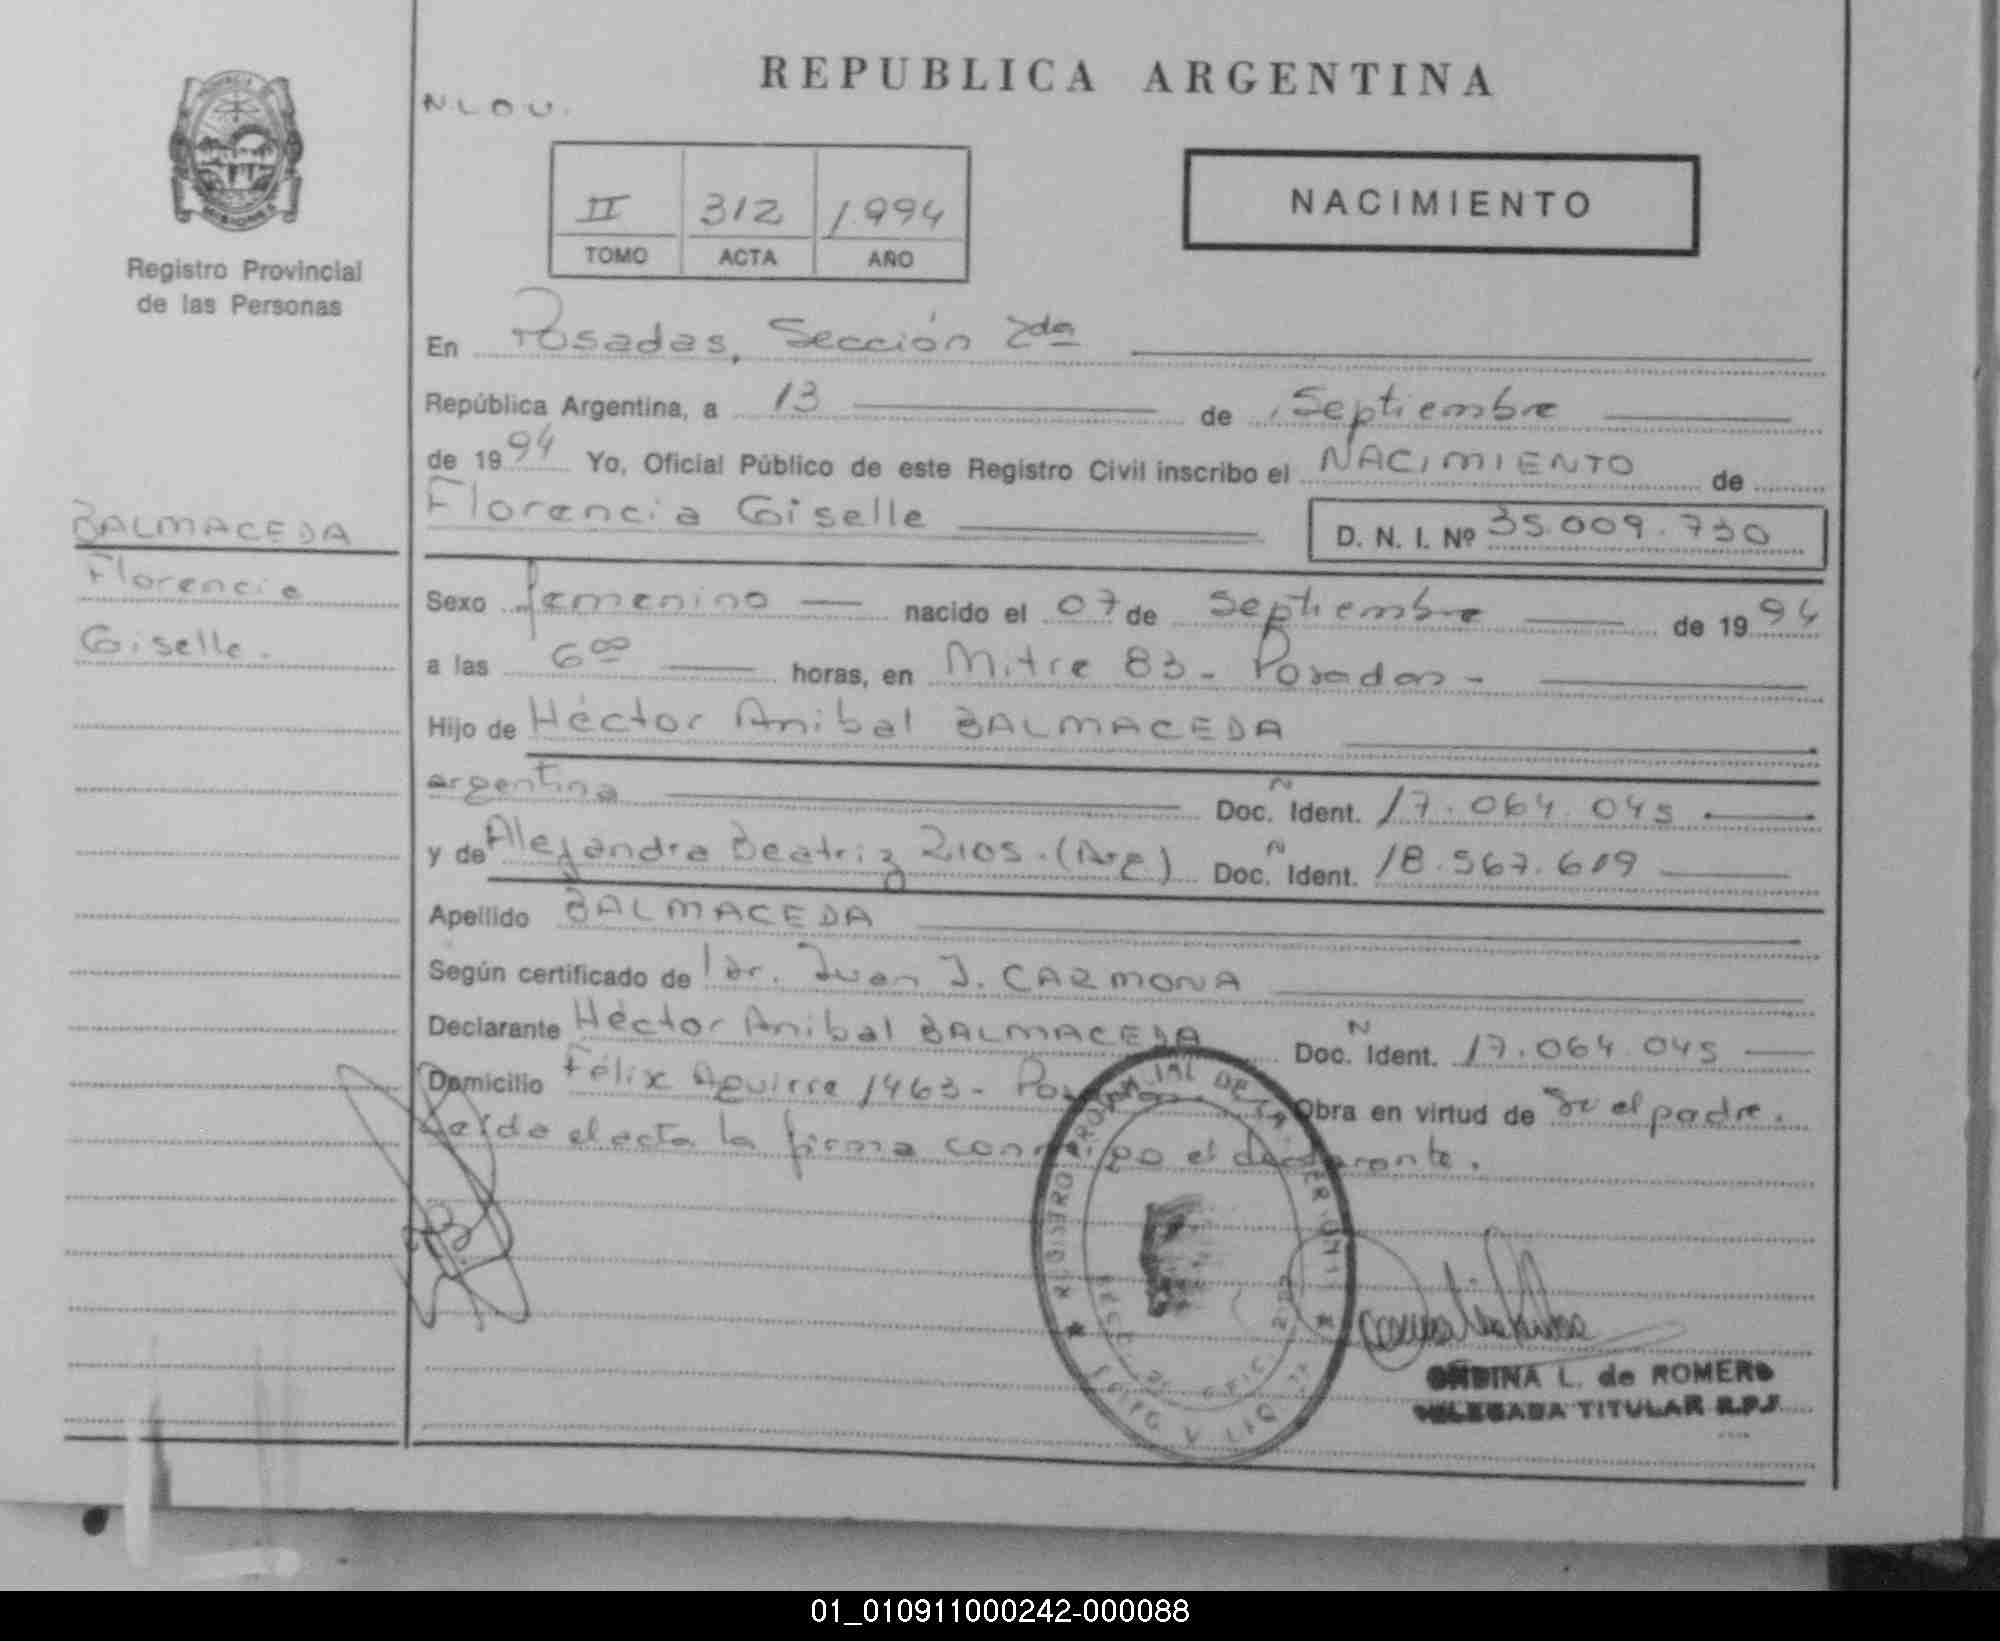 REPUBLICA ARGENTINA
N.L.O.U.
II 312 1.994
TOMO ACTA AÑO
NACIMIENTO
MISIONES
Registro Provincial
de las Personas
En Posadas, Sección 2da
República Argentina, a 13 de Septiembre
de 1994 Yo, Oficial Público de este Registro Civil inscribo el NACIMIENTO de
Florencia Giselle D. N. I. Nº 35.009.730
BALMACEDA
Florencia
Giselle.
Sexo femenino nacido el 07 de Septiembre de 1994
a las 6°° horas, en Mitre 83 - Posadas -
Hijo de Héctor Anibal BALMACEDA
argentina Doc. N Ident. 17.064.045
y de Alejandra Beatriz Rios. (Arg) Doc. N Ident. 18.567.619
Apellido BALMACEDA
Según certificado de Dr. Juan J. CARMONA
Declarante Héctor Anibal BALMACEDA Doc. N Ident. 17.064.045
Domicilio Félix Aguirre 1463 - Posadas. Obra en virtud de Ser el padre.
Leída el acta la firma conmigo el declarante.
REGISTRO PROVINCIAL DE LAS PER
ONDINA L. de ROMERO
DELEGADA TITULAR R.P.P.
01_010911000242-000088